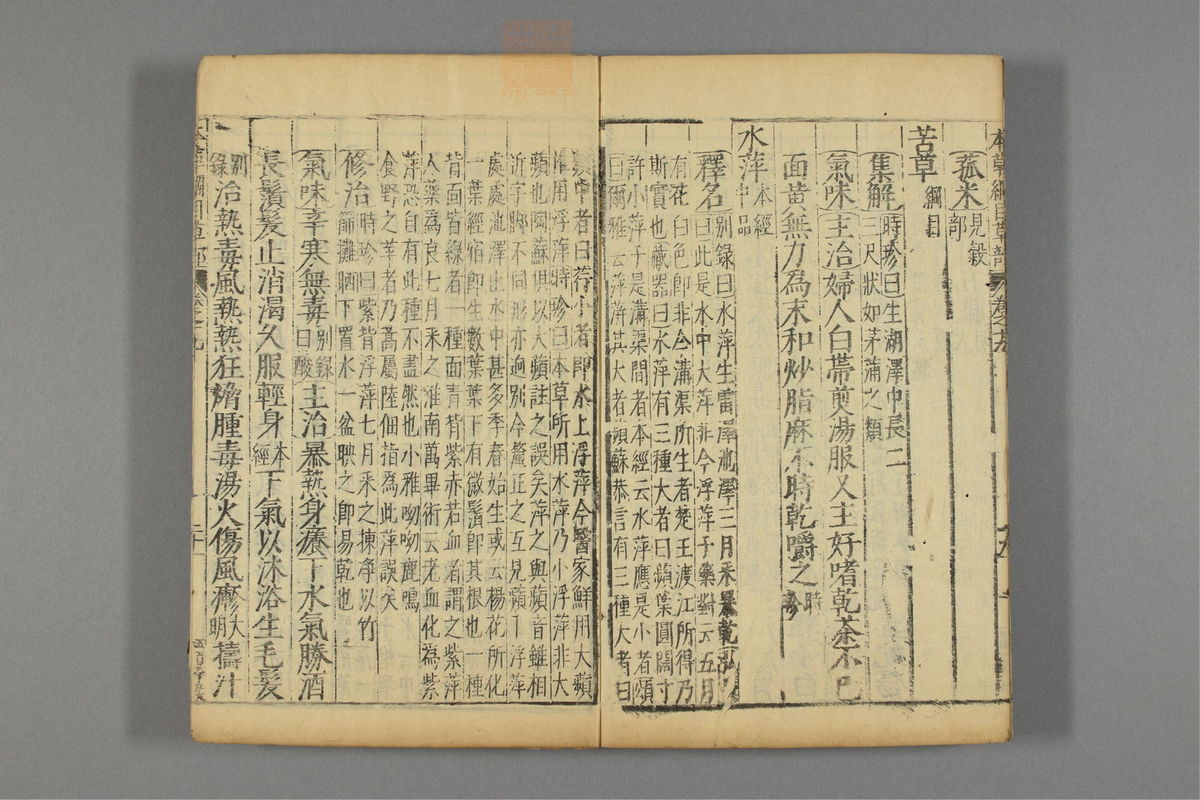 本草綱目草部 卷之九
菰米見穀部
苦草綱目
集解時珍曰生湖澤中長二三尺狀如茅蒲之類
氣味主治婦人白帶煎湯服又主好嗜乾茶不已
面黃無力為末和炒脂麻不時乾嚼之時珍
水萍本經中品
釋名別錄曰水萍生雷澤池澤三月采暴乾弘
景曰此是水中大萍非今浮萍子藥對云五月
有花白色即非今溝渠所生者楚王渡江所得乃
斯實也藏器曰水萍有三種大者曰蘋葉圓闊寸
許小萍子是溝渠間者本經云水萍應是小者頌
曰爾雅云萍蓱其大者蘋蘇恭言有三種大者曰
中者曰荇小者即水上浮萍今醫家鮮用大蘋
用浮萍時珍曰本草所用水萍乃小浮萍非大
蘋也陶蘇俱以大蘋註之誤矣萍之與蘋音雖相
近字脚不同形亦迥別今釐正之互見蘋下浮萍
處處池澤止水中甚多季春始生或云楊花所化
一葉經宿即生數葉葉下有微鬚即其根也一種
背面皆綠者一種面青背紫赤若血者謂之紫萍
入藥為良七月采之淮南萬畢術云老血化為紫
萍恐自有此種不盡然也小雅呦呦鹿鳴
食野之苹者乃蒿屬陸佃指為此萍誤矣
修治時珍曰紫背浮萍七月采之揀淨以竹
篩攤晒下置水一盆映之即易乾也
氣味辛寒無毒別錄曰酸主治暴熱身癢下水氣勝酒
長鬚髮止消渴久服輕身本經下氣以沐浴生毛髮
別錄治熱毒風熱熱狂熁腫毒湯火傷風疹大明擣汁